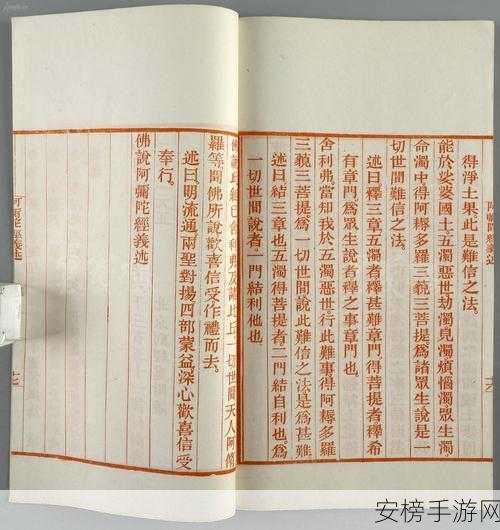 得淨土果此是難信之法
能於娑婆國土五濁惡世劫濁見濁煩惱濁眾生濁
命濁中得阿耨多羅三藐三菩提爲諸眾生說是一
切世間難信之法
述曰釋三章五濁者釋甚難章門得菩提者釋希
有章門爲眾生說者釋之事章門也
舍利弗當知我於五濁惡世行此難事得阿耨多羅
三藐三菩提爲一切世間說此難信之法是爲甚難
述曰結三章也五濁得菩提者二門結自利也爲
一切世間說者一門結利他也
佛說此經已舍利弗及諸比丘一切世間天人阿脩
羅等聞佛所說歡喜信受作禮而去
述曰明流通兩聖對揚四部蒙益深心歡喜信受
奉行
佛說阿彌陀經義述
阿彌陀經義述
十七
安榜手游网